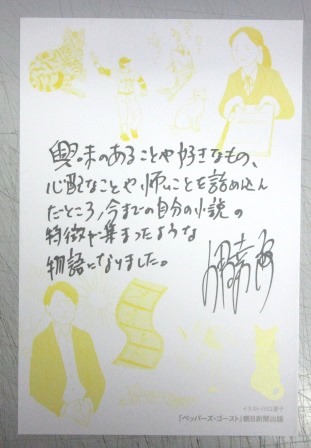 興味のあることや好きなもの、
心配なことや怖いことを詰め込ん
だところ、今までの自分の小説の
特徴が集まったような
物語になりました。
『ペッパーズ・ゴースト』朝日新聞出版